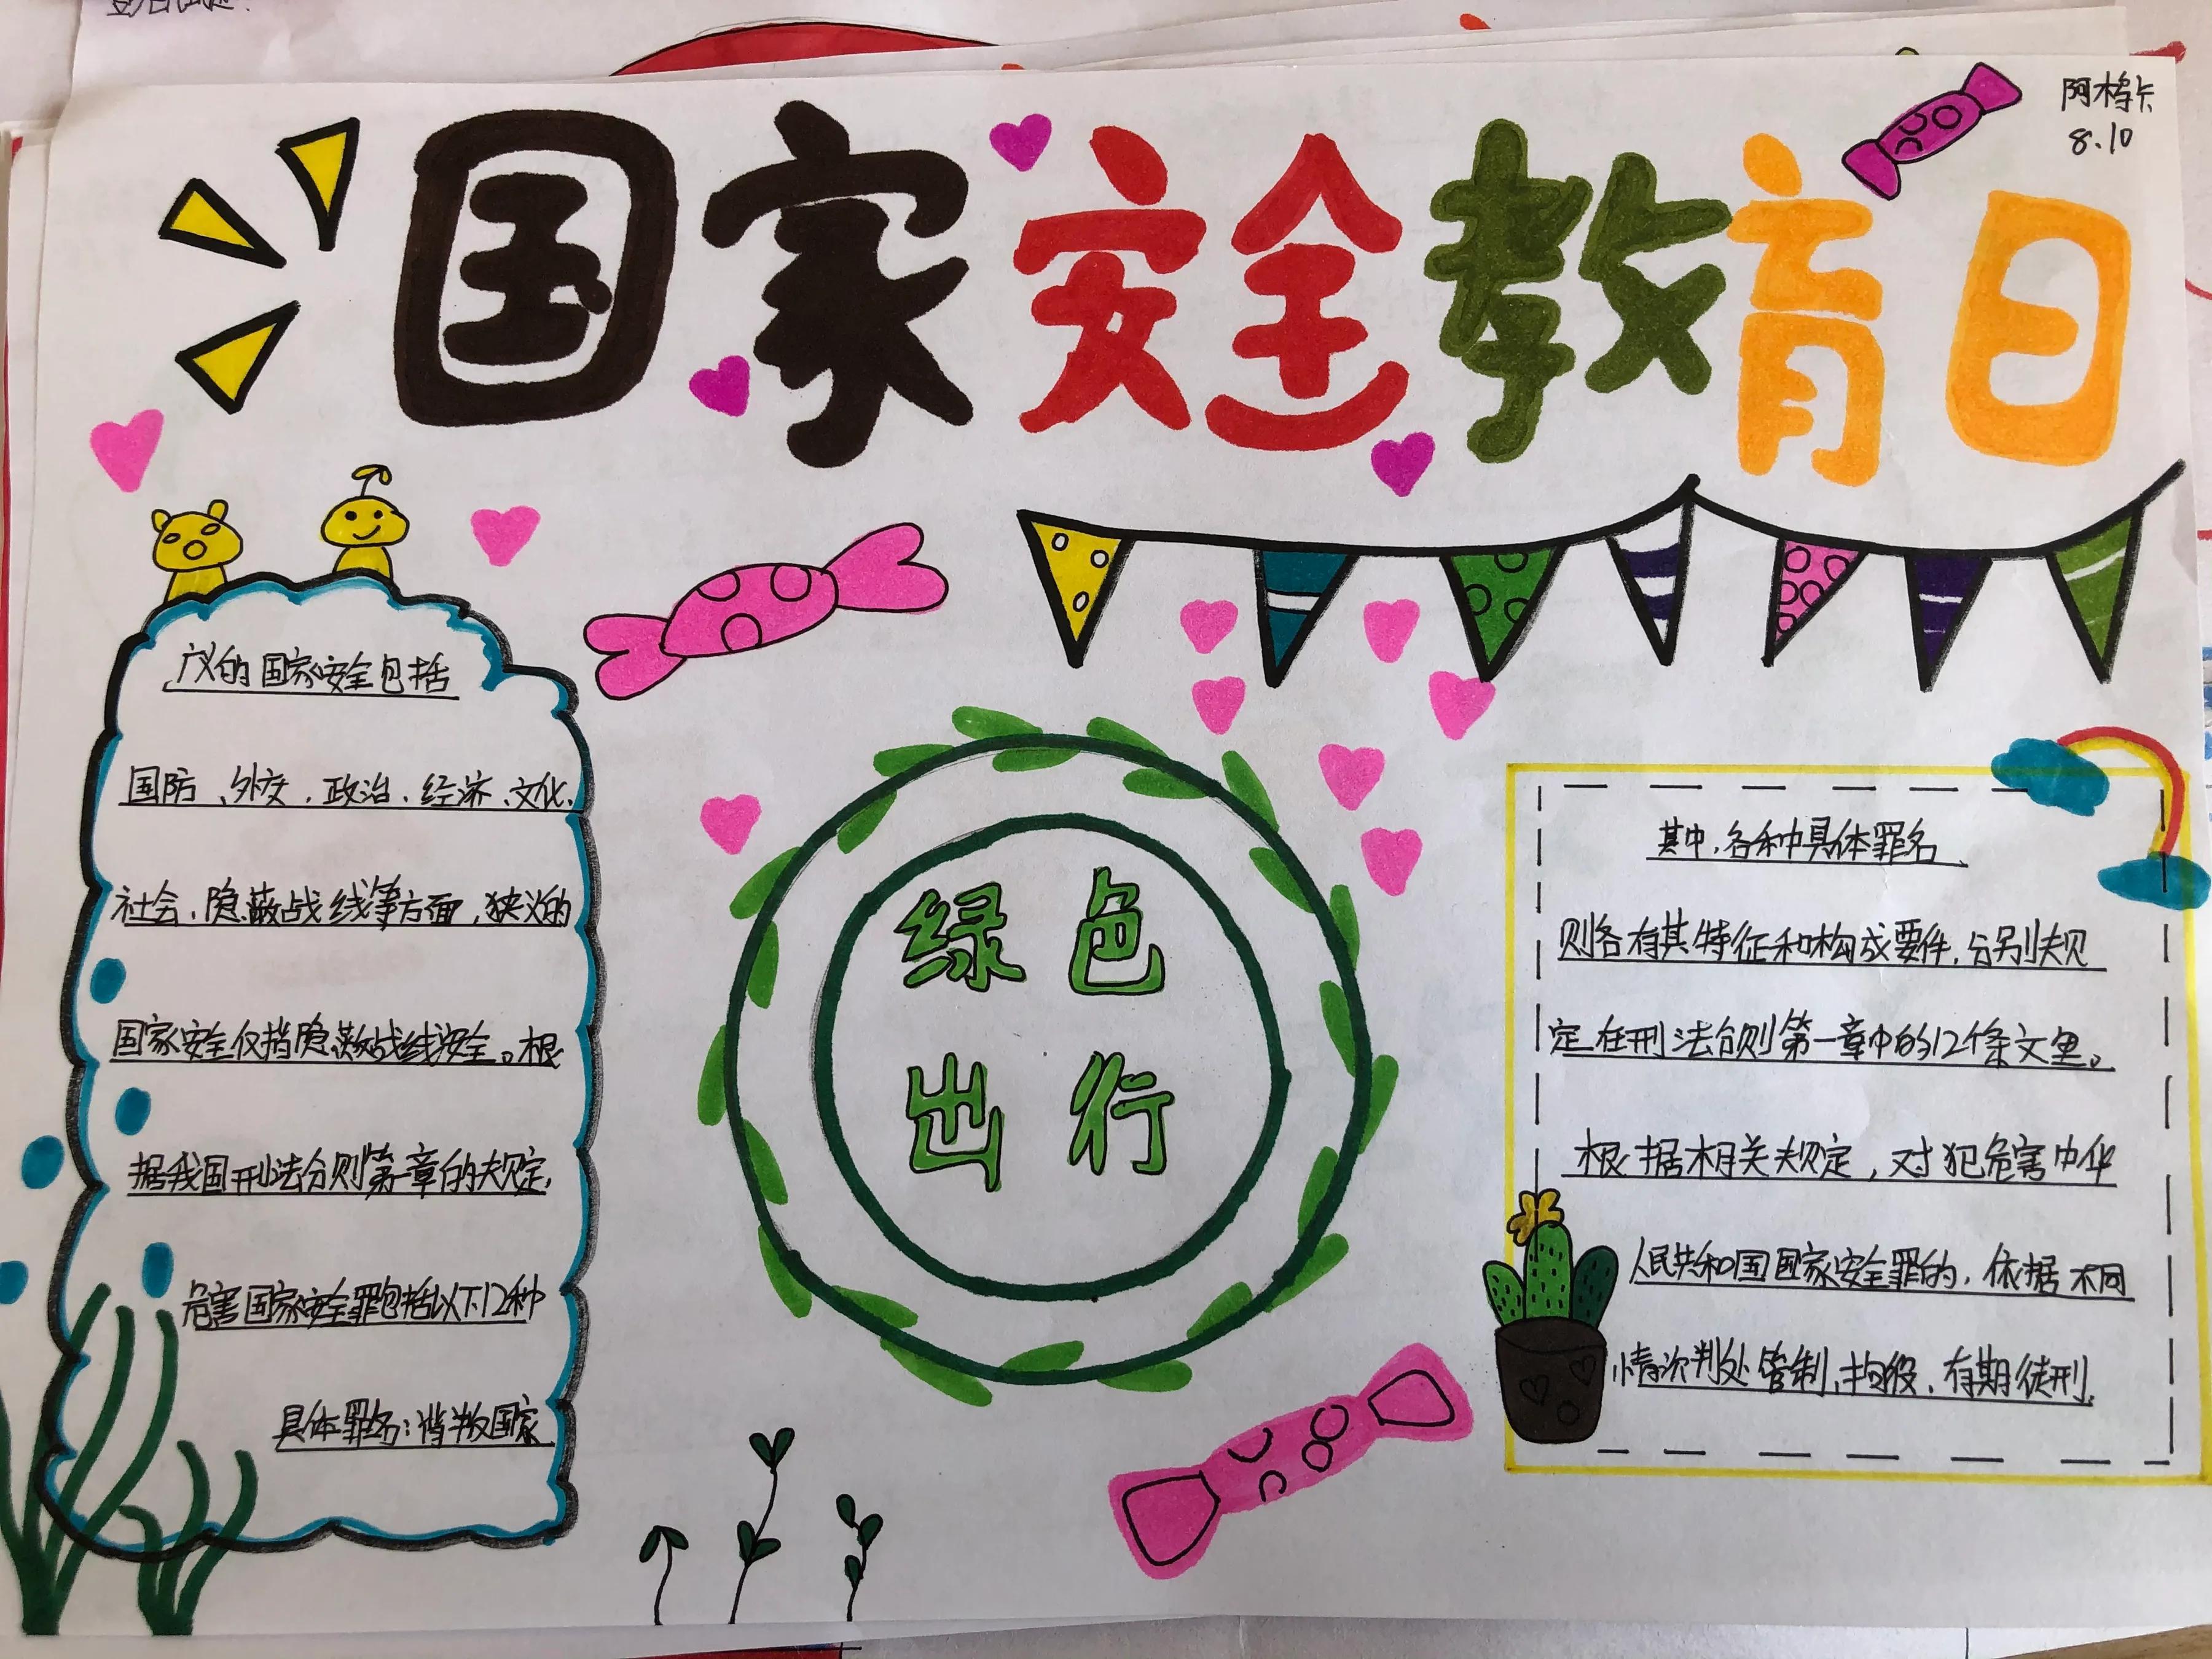 阿格卡
8.10
国家安全教育日
广义的国家安全包括
国防、外交、政治、经济、文化、
社会、隐蔽战线等方面,狭义的
国家安全仅指隐蔽战线安全。根
据我国刑法分则第一章的规定,
危害国家安全罪包括以下12种
具体罪名:背叛国家
绿色
出行
其中,各种具体罪名
则各有其特征和构成要件,分别规
定在刑法分则第一章中的12个条文里。
根据相关规定,对犯危害中华
人民共和国国家安全罪的,依据不同
情次判处管制、拘役、有期徒刑、